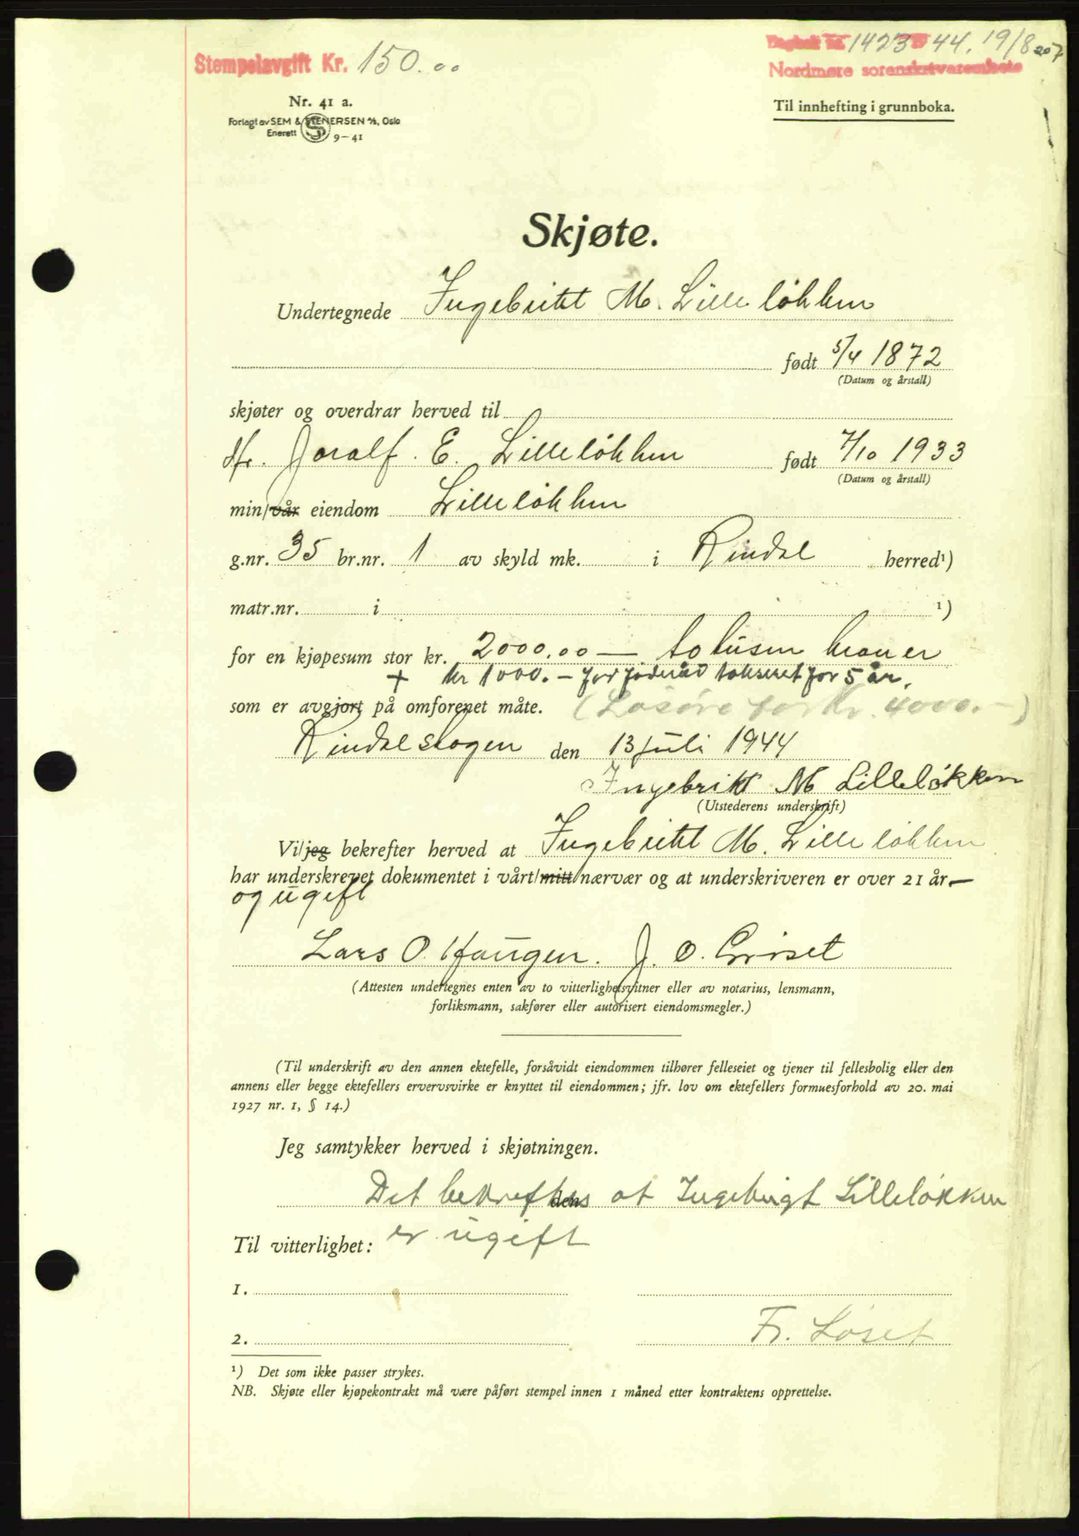 Stempelavgift Kr. 150.00
Dagbok nr. 1423 44. 19/8 207
Nordmøre sorenskriverembete
Nr. 41 a.
Forlagt av SEM & STENERSEN A/S, Oslo
Enerett 9-41
Til innhefting i grunnboka.
Skjøte.
Undertegnede Ingebrikt M. Lilleløkken
født 5/4 1872
(Datum og årstall)
skjøter og overdrar herved til
Hr. Joralf. E. Lilleløkken født 7/10 1933
(Datum og årstall)
min/vår eiendom Lilleløkken
g.nr. 35 br.nr. 1 av skyld mk. i Rindal herred¹)
matr.nr. i ¹)
for en kjøpesum stor kr. 2000.00 — totusen kroner
+ kr 1000. - for föderåd takseret for 5 år.
som er avgjort på omforenet måte. (Løsøre for kr. 4000.-)
Rindalskogen den 13 juli 1944
Ingebrikt M Lilleløkken
(Utstederens underskrift)
Vi/jeg bekrefter herved at Ingebrikt M. Lilleløkken
har underskrevet dokumentet i vårt/mitt nærvær og at underskriveren er over 21 år—
og ugift
Lars O. Haugen. J. O. Griset
(Attesten undertegnes enten av to vitterlighetsvitner eller av notarius, lensmann,
forliksmann, sakfører eller autorisert eiendomsmegler.)
(Til underskrift av den annen ektefelle, forsåvidt eiendommen tilhører felleseiet og tjener til fellesbolig eller den
annens eller begge ektefellers ervervsvirke er knyttet til eiendommen; jfr. lov om ektefellers formuesforhold av 20. mai
1927 nr. 1, § 14.)
Jeg samtykker herved i skjøtningen.
Det bekreftes at Ingebrigt Lilleløkken
Til vitterlighet: er ugift
1.
2. Fr. Løset
¹) Det som ikke passer strykes.
NB. Skjøte eller kjøpekontrakt må være påført stempel innen 1 måned etter kontraktens opprettelse.